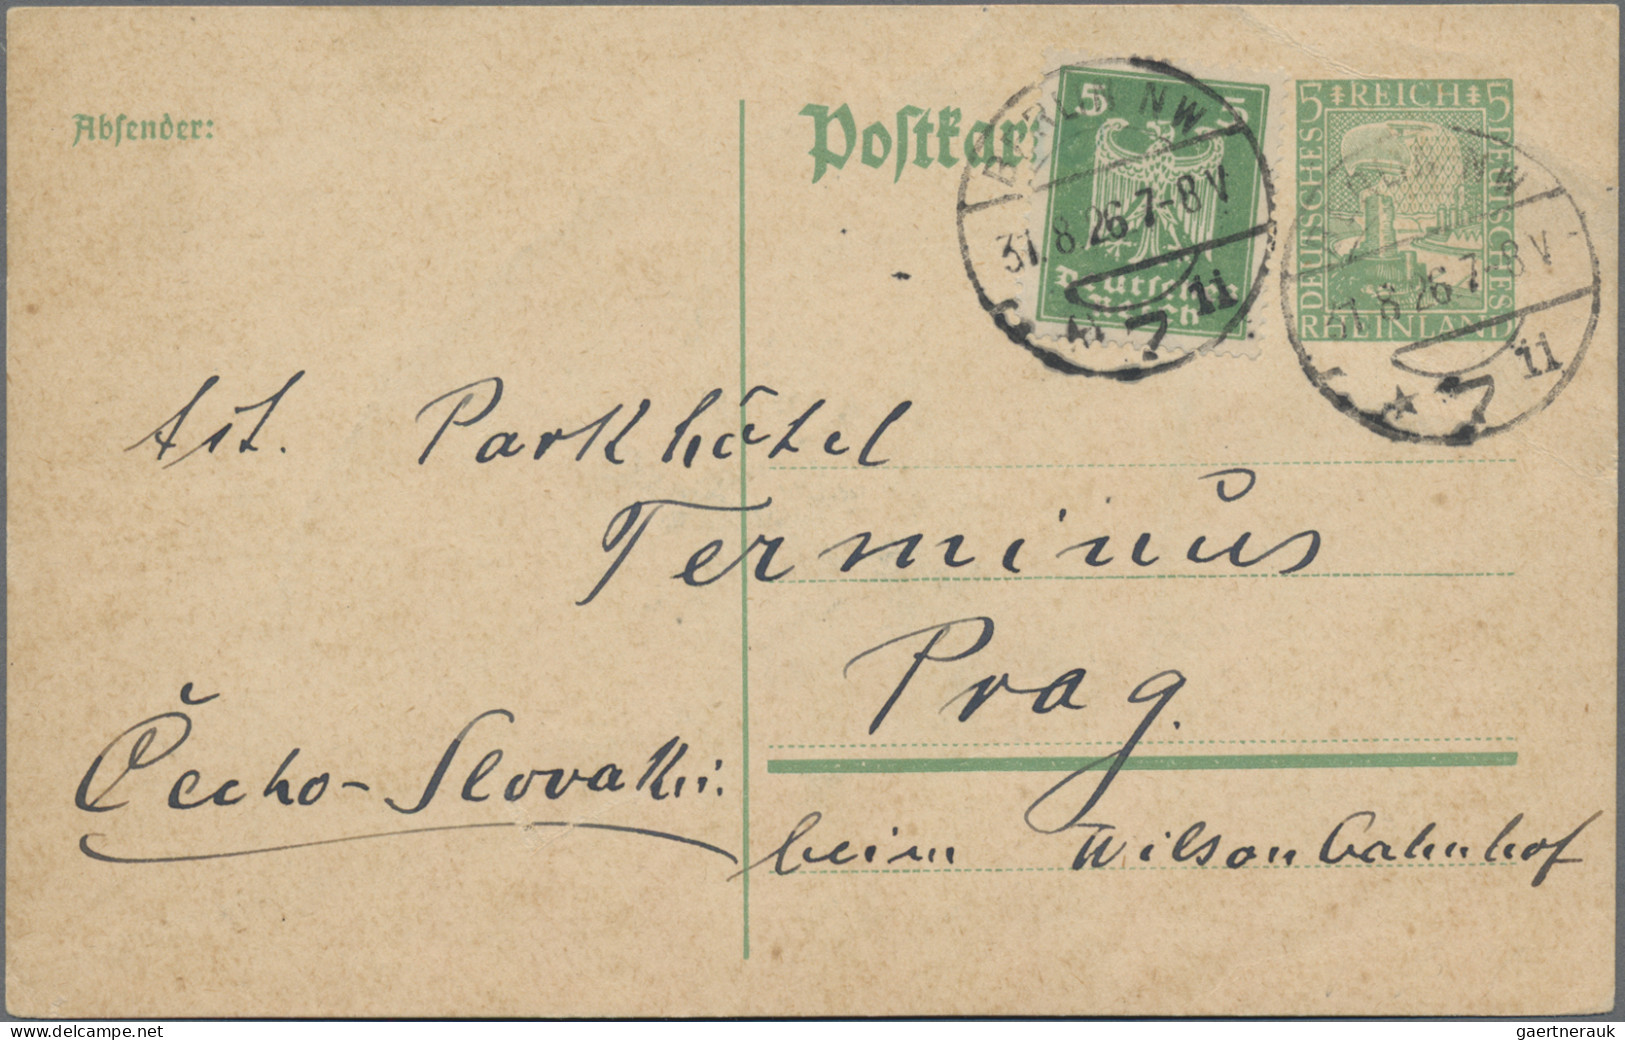 Absender:
Postkar
5 5
Deutsches
Reich
BERLIN NW
31.8.26.7-8 V
7
11
5 REICH 5
DEUTSCHES
DEUTSCHES
RHEINLAND
NW
31.8.26.7-8 V
* 7
11
Parkhôtel
Terminus
Prag.
Čecho-Slovakei.
beim Wilsonbahnhof
www.delcampe.net
gaertnerauk